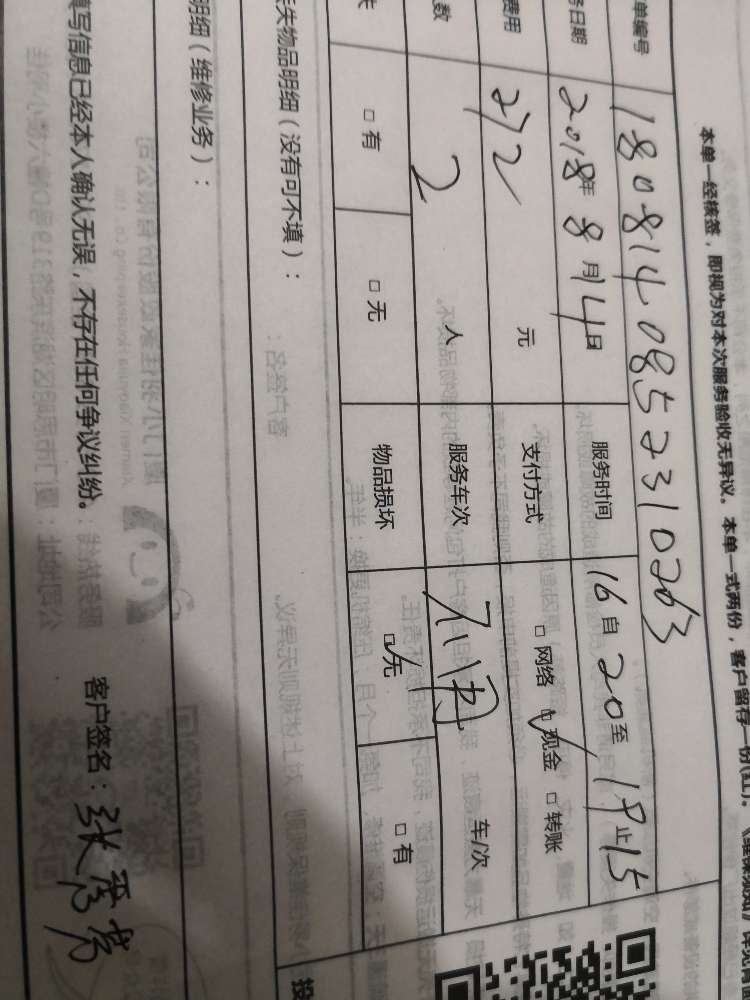 本单一经核签，即视为对本次服务验收无异议。本单一式两份，客户留存一份(红)。
单编号 1808140852310263
务日期 2018年8月14日 服务时间 16自20至19止15
费用 272元 支付方式 □网络 ☑现金 □转账
数 2人 服务车次 不用 车/次
失 □有 □无 物品损坏 ☑无 □有
失物品明细（没有可不填）：
明细（维修业务）：
填写信息已经本人确认无误，不存在任何争议纠纷。 客户签名：张
投